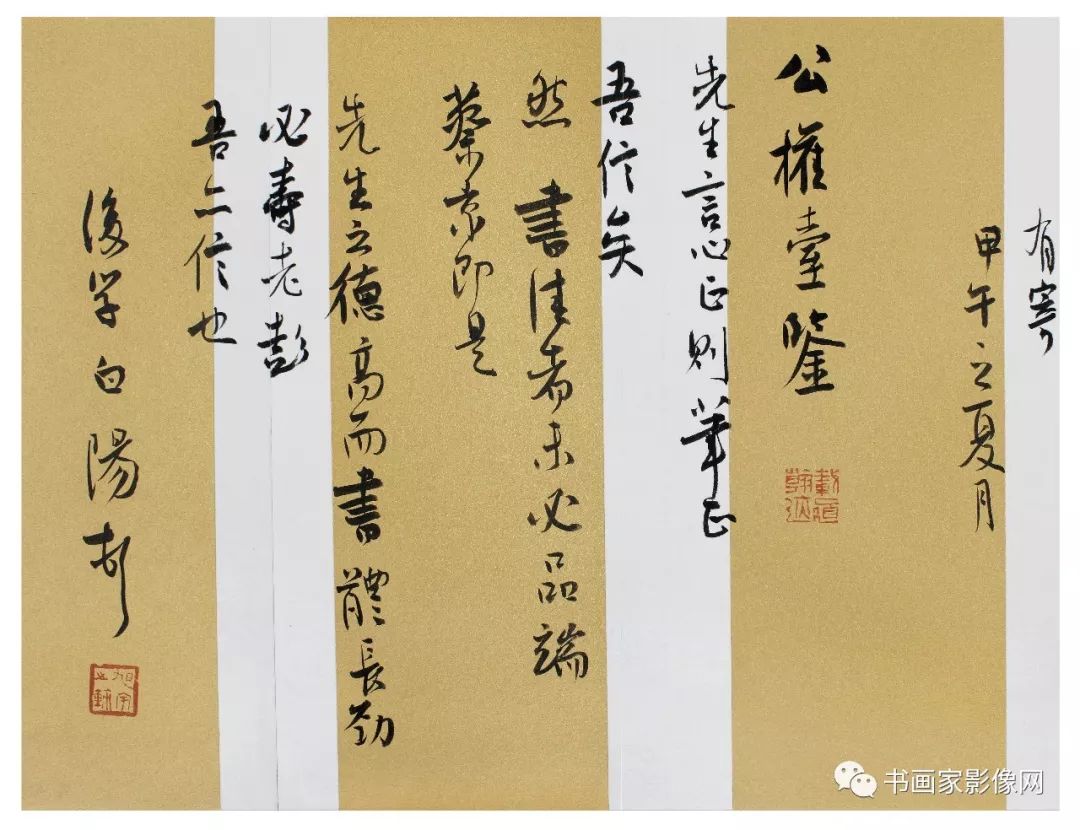 有寄
甲午之夏月
公權臺鑒
先生言心正則筆正
吾信矣
然書佳者未必品端
蔡京即是
先生之德高而書體長勁
必壽老彭
吾亦信也
後学白陽
书画家影像网